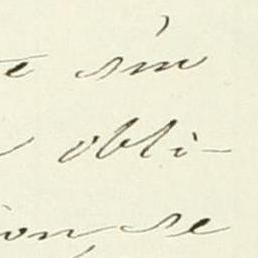 e sin
obli-
ion, se